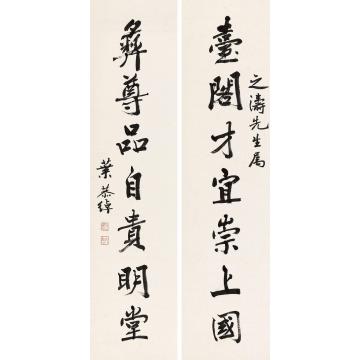 臺閣才宜崇上國
之濤先生屬
彝尊品自貴明堂
葉恭綽